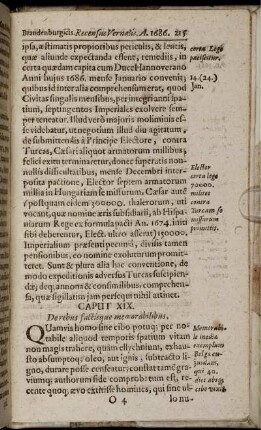 Brandenburgicis. Recensus Vernalis. A. 1686. 215
ipsa, æstimatis propioribus periculis, & lentis,
quæ aliunde expectanda essent, remediis, in
certa quædam capita cum Duce Hannoverano
Anni hujus 1686. mense Januario convenit;
quibus id inter alia comprehensum erat, quod
Civitas singulis mensibus, per integrum spatium,
septingentos Imperiales exolvere semper
teneatur. Illud verò majoris moliminis esse
videbatur, ut negotium illud diu agitatum,
de submittendis à Principe Electore, contra
Turcas, Cæsari aliquot armatorum millibus,
felici exitu terminaretur, donec superatis nonnullis
difficultatibus, mense Decembri interposita
pactione, Elector septem armatorum
millia in Hungariam se missurum, Cæsar autem
postquam eidem 300000. thalerorum, uti
vocant, quæ nomine æris subsidiarii, ab Hispaniarum
Rege ex formula pacti An. 1674. initi
sibi deberentur, Elect. ultro assensit 150000.
Imperialium præsenti pecuniâ, divisis tamen
pensionibus, eo nomine exoluturum promitteret.
Sunt & plura alia hoc conventione, de
modo expeditionis adversus Turcas suscipiendæ,
deq; annona & consimilibus. comprehensa,
quæ sigillatim jam persequi nihil attinet.
certa Lege
paciscitur.
14. (24.)
Jan.
Elector
certa lege
70000.
milites
contra
Turcam se
missurum
promittit.
CAPUT XIX.
De rebus factisque memorabilibus.
Quamvis homo sine cibo potuq; per notabile
aliquod temporis spatium vitam
non magis trahere, quàm ellychnium, exhausto
absumptoq; oleo, aut ignis, subtracto ligno,
durare posse censeatur; constat tamen
gravium authorum side comprobatum est,
repente quoq; ævo extitisse homines, qui sine
Memorabile
inediæ
exemplum
Belgæ cujusdam,
qui 40.
dies absq;
cibo vixit.
O 4